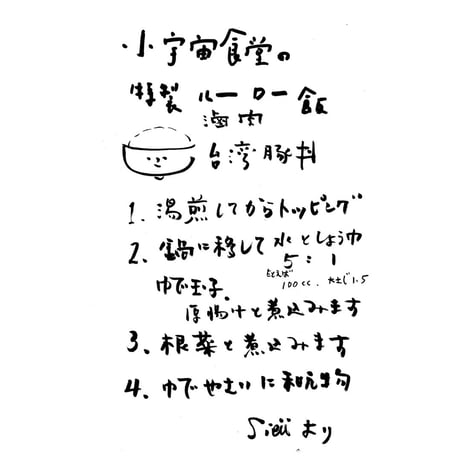 小宇宙食堂の
特製 ルーロー飯
滷肉
台湾豚丼
1、湯煎してからトッピング
2、鍋に移して水としょうゆ
5:1
たとえば 100cc、大さじ1.5
ゆで玉子、
厚揚げと煮込みます
3、根菜と煮込みます
4、ゆでやさいに和え
より